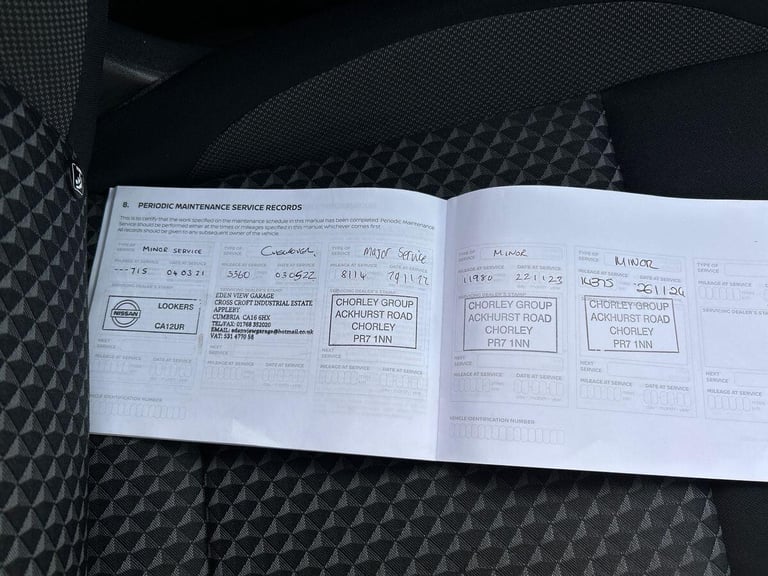 8. PERIODIC MAINTENANCE SERVICE RECORDS
This is to certify that the work specified on the maintenance schedule in this manual has been completed. Periodic Maintenance
Service should be performed either at the times or mileages specified in this manual whichever comes first.
All records should be given to any subsequent owner of the vehicle.
TYPE OF SERVICE MINOR SERVICE
MILEAGE AT SERVICE DATE AT SERVICE
---715 040321
SERVICING DEALER'S STAMP
NISSAN
LOOKERS
CA12UR
NEXT SERVICE
MILEAGE AT SERVICE DATE AT SERVICE
VEHICLE IDENTIFICATION NUMBER
TYPE OF SERVICE
MILEAGE AT SERVICE DATE AT SERVICE
3360 030522
EDEN VIEW GARAGE
CROSS CROFT INDUSTRIAL ESTATE
APPLEBY
CUMBRIA CA16 6HX
TEL/FAX: 01768 352020
EMAIL: edenviewgarage@hotmail.co.uk
VAT: 531 4770 58
NEXT SERVICE
MILEAGE AT SERVICE DATE AT SERVICE
TYPE OF SERVICE Major Service
MILEAGE AT SERVICE DATE AT SERVICE
8114
SERVICING DEALER'S STAMP
CHORLEY GROUP
ACKHURST ROAD
CHORLEY
PR7 1NN
NEXT SERVICE
MILEAGE AT SERVICE DATE AT SERVICE
TYPE OF SERVICE MINOR
MILEAGE AT SERVICE DATE AT SERVICE
11980 221123
SERVICING DEALER'S STAMP
CHORLEY GROUP
ACKHURST ROAD
CHORLEY
PR7 1NN
NEXT SERVICE
MILEAGE AT SERVICE DATE AT SERVICE
VEHICLE IDENTIFICATION NUMBER
TYPE OF SERVICE MINOR
MILEAGE AT SERVICE DATE AT SERVICE
261124
CHORLEY GROUP
ACKHURST ROAD
CHORLEY
PR7 1NN
NEXT SERVICE
MILEAGE AT SERVICE DATE AT SERVICE
TYPE OF SERVICE
MILEAGE AT SERVICE
SERVICING DEALER'S
NEXT SERVICE
MILEAGE AT SERVICE